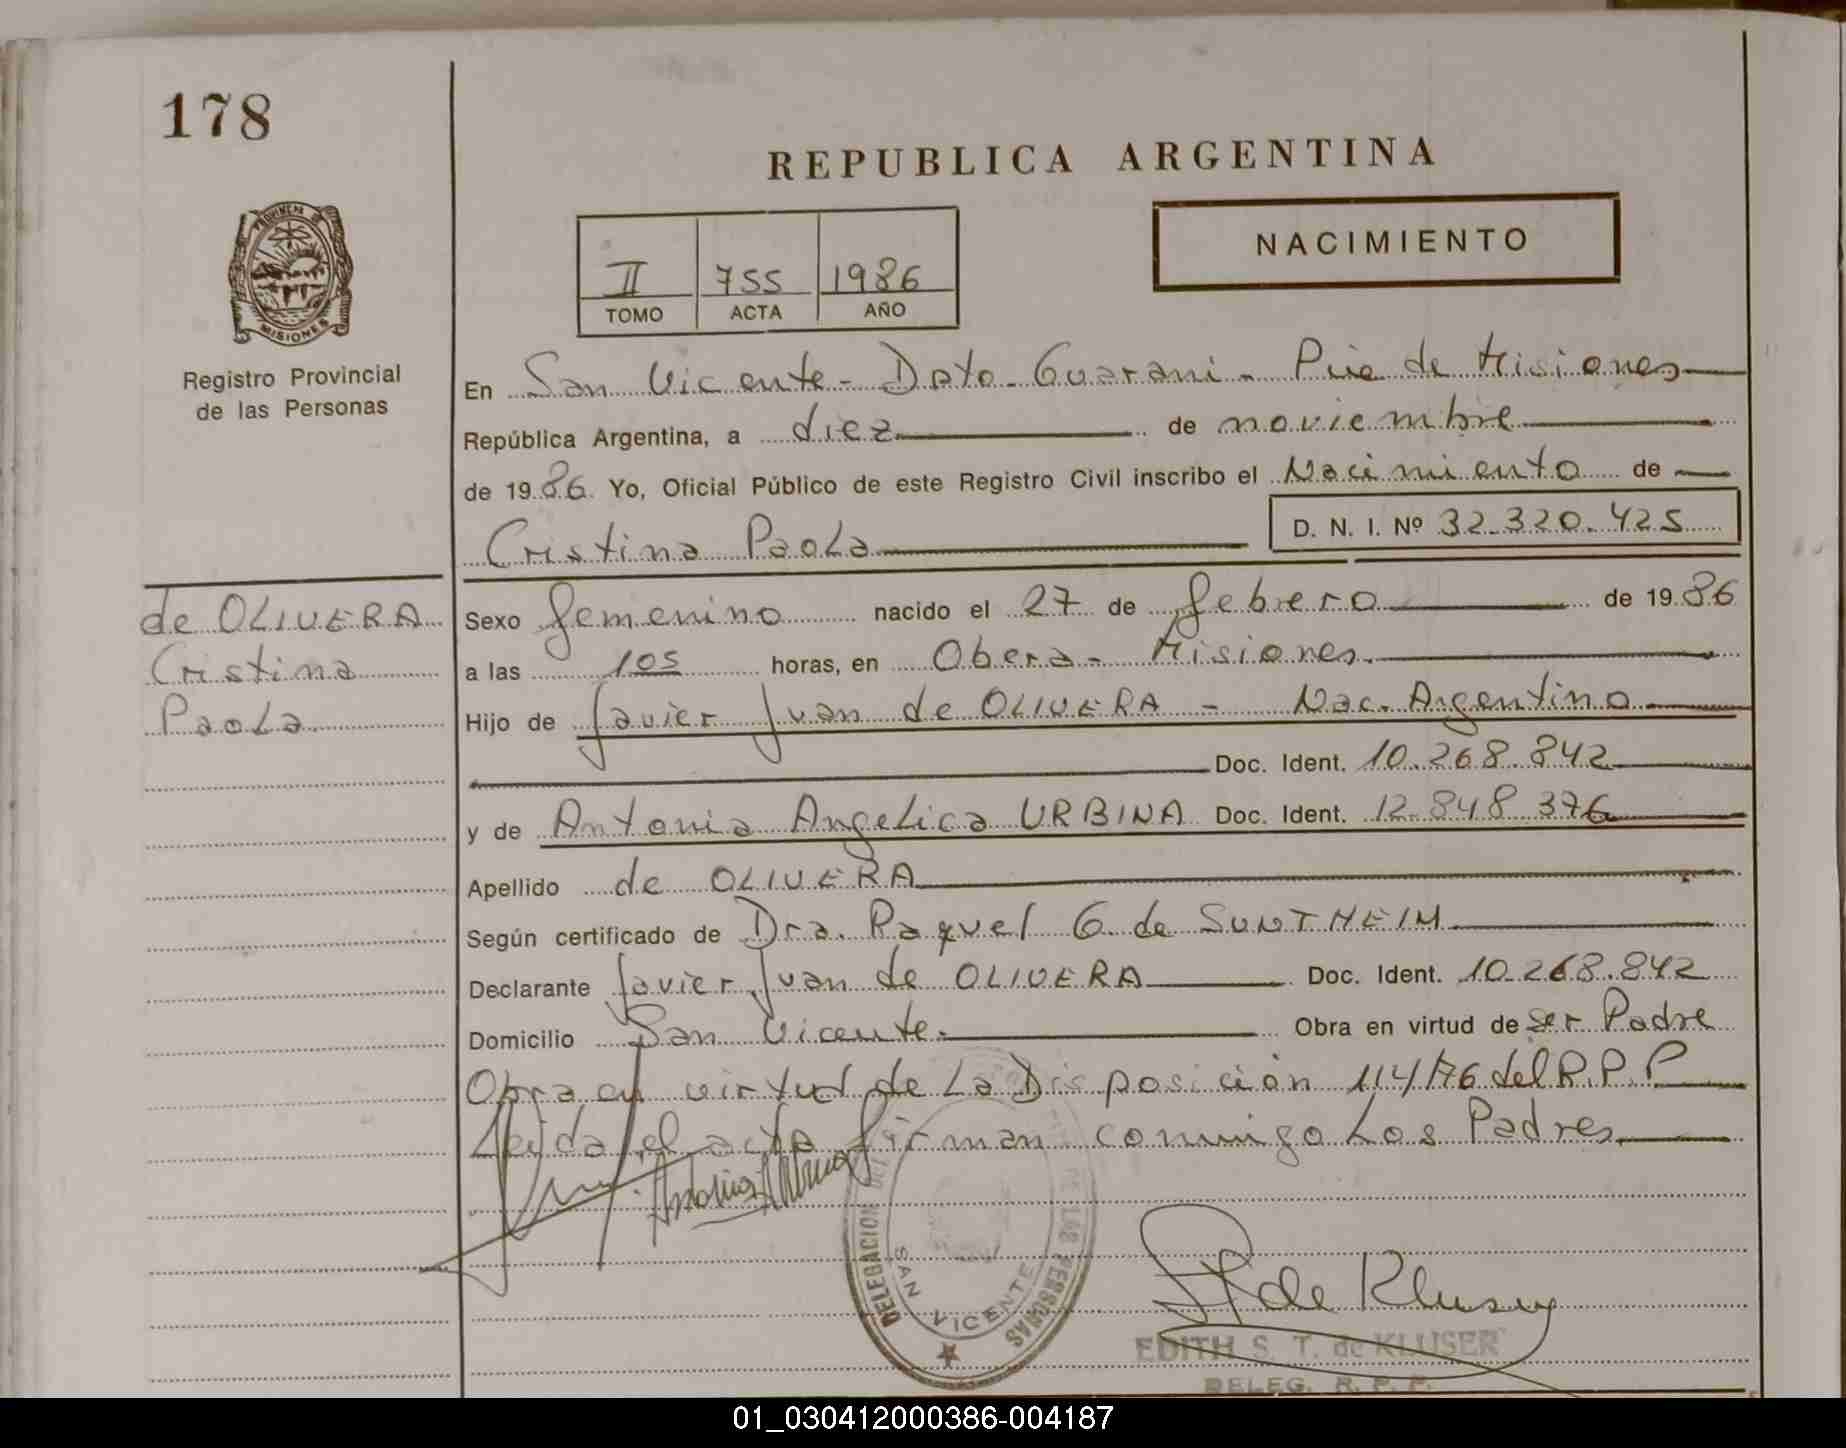 178
REPUBLICA ARGENTINA
NACIMIENTO
PROVINCIA DE
MISIONES
II 755 1986
TOMO ACTA AÑO
Registro Provincial
de las Personas
En San Vicente - Dpto - Guarani - Pcia de Misiones
República Argentina, a diez de noviembre
de 1986 Yo, Oficial Público de este Registro Civil inscribo el Nacimiento de
Cristina Paola D. N. I. Nº 32.320.425
de OLIVERA
Cristina
Paola
Sexo femenino nacido el 27 de febrero de 1986
a las 105 horas, en Obera - Misiones.
Hijo de Javier Juan de OLIVERA - Nac. Argentino
Doc. Ident. 10.268.842
y de Antonia Angelica URBINA Doc. Ident. 12.848.376
Apellido de OLIVERA
Según certificado de Dra. Raquel G. de SUNTHEIM
Declarante Javier Juan de OLIVERA Doc. Ident. 10.268.842
Domicilio San Vicente. Obra en virtud de ser Padre
Obra en virtud de La Disposición 114/76 del R.P.P
Leida el acta firman conmigo Los Padres
DELEGACION DEL DE LAS PERSONAS
SAN VICENTE
de Kluser
EDITH S. T. de KLUSER
DELEG. R. P. P.
01_030412000386-004187